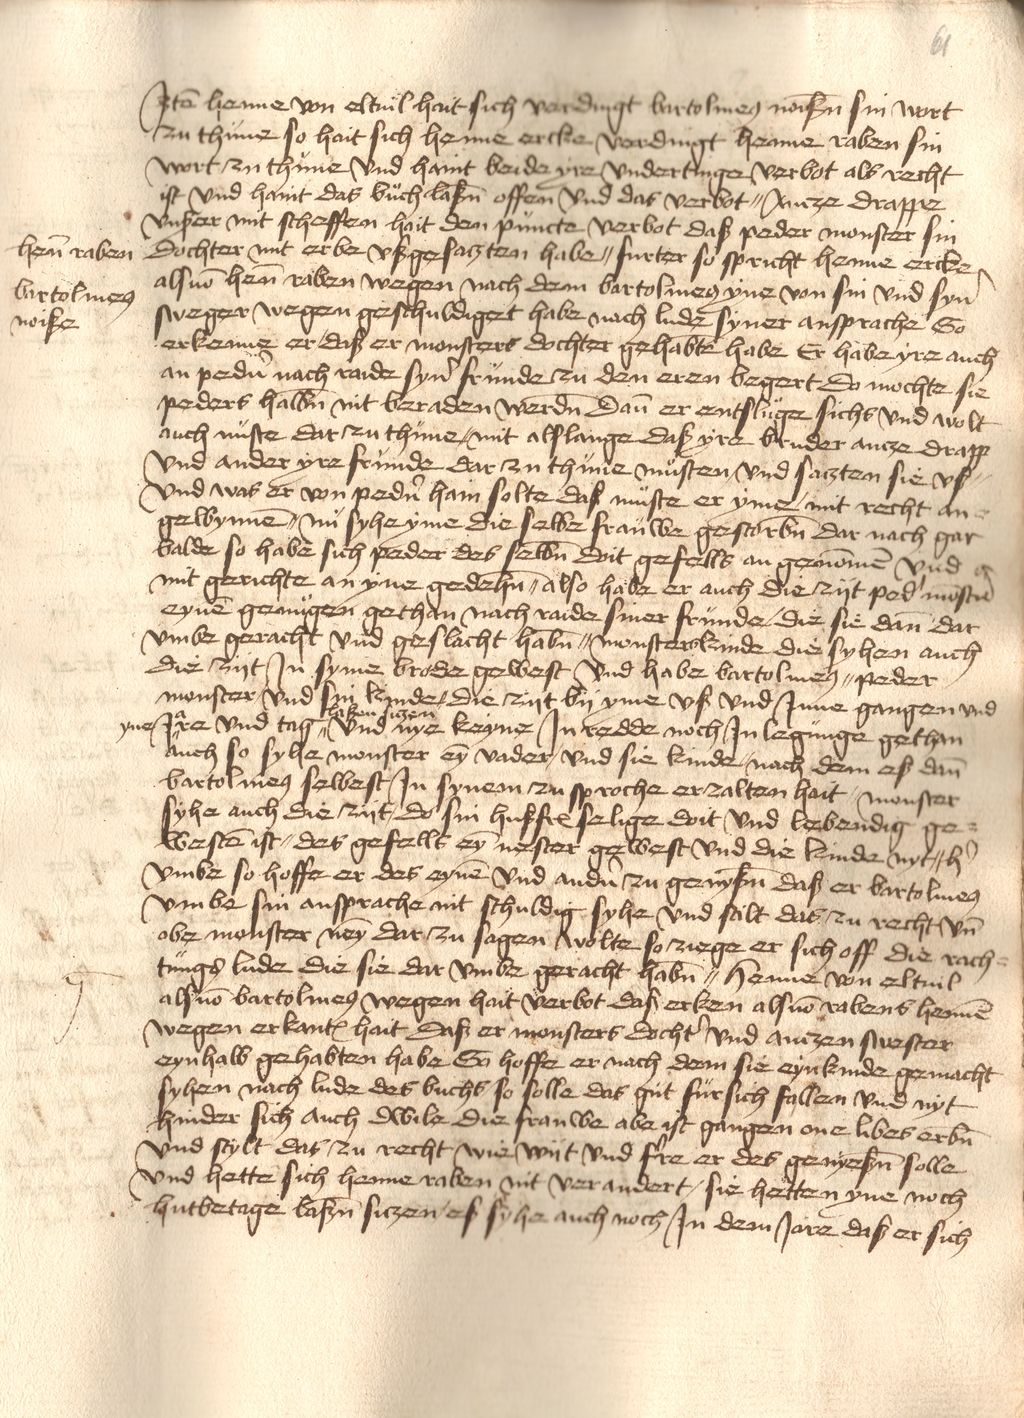 61
Jtē henne von eltuil hait sich verdingt bartolmeꝯ noißn̄ sin wort
zu thüne so hait sich henne ercke verdingt henne raben sin
wort zu thüne vnd haint beide yre vndertinge verbot als recht
ist vnd haint das büch laßn̄ offen vnd das verbot // Ancze drappe
vnßer mit scheffen hait den püncte verbot daß peder monster sin
henn̄ raben
dochter mit erbe vßgesaczten habe // furter so spricht henne ercke
bartolmeꝯ
noiße
als vō henn̄ raben wegen nach dem bartolmeꝯ yne von sin vnd syn̄
sweger wegen geschuldiget habe nach lude syner ansprache So
erkenne er daß er monsters dochter gehabte habe Er habe yre auch
an ped'n nach raide syn' fründe zu den eren begert do mochte sie
peders halbn̄ nit beraden werdn̄ Dan̄ er entslüge sichs vnd wolt
auch nüste dar zu thüne / mit als lange daß yre bruder ancze drapp
vnd ander yre fründe dar zu thüne müsten / vnd saczten sie vß //
vnd was er von ped'n hain solte daß müste er yme / mit recht an
gewynnē // nü syhe yme die selbe frauwe gestorbn̄ dar nach gar
balde so habe sich peder des selbn̄ doit gefells an genōmē vnd
mit gerichte an yne gedehn̄ // also habe er auch die zijt ped' monst'n
eynē genügen gethan nach raide siner fründe / die sie dan̄ dar
vmbe geracht vnd geslacht habn̄ // monsters kinde die syhen auch
die zijt Jn syme brode gewest vnd habe bartolmeꝯ // peder
monster vnd sin kinde / die zijt bij yme vß vnd Jnne gangen vnd
yne laßen siczen
Jare vnd tag // vnd nye keyne Jn redde noch Jn legünge gethan
auch so syhe monster eȳ vader / vnd sie kinde / nach dem eß dan̄
bartolmeꝯ selbest Jn synem zu sproche erzalten hait / monster
syhe auch die zijt do sin hußfr̄ selige doit vnd lebendig ge=
westē ist // des gefells eȳ nester gewest vnd die kinde nyt // h'
vmbe so hoffe er des eynē vnd and'n zu genyßn̄ daß er bartolmeꝯ
vmbe sin ansprache nit schuldig syhe vnd stilt das zu recht vn̄
abe monster neȳ dar zu sagen wolte so ziege er sich off die rach=
tüngs lude die sie dar vmbe geracht habn̄ // Henne von eltuil
als vō bartolmeꝯ wegen hait verbot daß erken als vō rabens hennē
wegen erkantē hait daß er monsters docht' vnd anczen swester
eynhalb gehabten habe So hoffe er nach dem sie eynkinde gemacht
syhen nach lude des buchs so solle das gut fürsich fallen vnd nyt
hinder sich Auch dwile die frauwe abe ist gangen one libes erbn̄
vnd stylt das zu recht wie wijt vnd fr̄e er des genyeßn̄ solle
vnd hette sich henne raben nit verandert / sie hetten yne noch
hutbetage laßn̄ siczen / eß syhe auch noch Jn dem Jare daß er sich